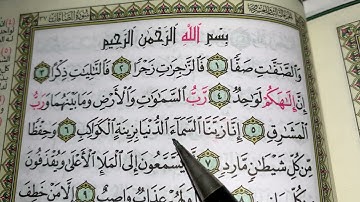 بِسْمِ اللَّهِ الرَّحْمَٰنِ الرَّحِيمِ
وَالصَّٰٓفَّٰتِ صَفًّا ١ فَالزَّٰجِرَٰتِ زَجْرًا ٢ فَالتَّٰلِيَٰتِ ذِكْرًا ٣
إِنَّ إِلَٰهَكُمْ لَوَٰحِدٌ ٤ رَّبُّ السَّمَٰوَٰتِ وَالْأَرْضِ وَمَا بَيْنَهُمَا وَرَبُّ
الْمَشَٰرِقِ ٥ إِنَّا زَيَّنَّا السَّمَآءَ الدُّنْيَا بِزِينَةٍ الْكَوَاكِبِ ٦ وَحِفْظًا
مِّن كُلِّ شَيْطَٰنٍ مَّارِدٍ ٧ يَسَّمَّعُونَ إِلَى الْمَلَإِ الْأَعْلَىٰ وَيُقْذَفُونَ
مِن كُلِّ جَانِبٍ ٨ وَلَهُمْ عَذَابٌ وَاصِبٌ ٩ إِلَّا مَنْ خَطِفَ